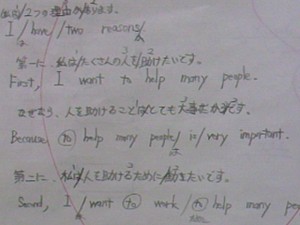 私は2つの理由があります。
I / have / two reasons
第一に、私はたくさんの人を助けたいです。
First, I want to help many people.
なぜなら、人を助けることはとても大事だからです。
Because to help many people / is / very important.
第二に、私は人を助けるために働きたいです。
Second, I / want to work / to help many peo